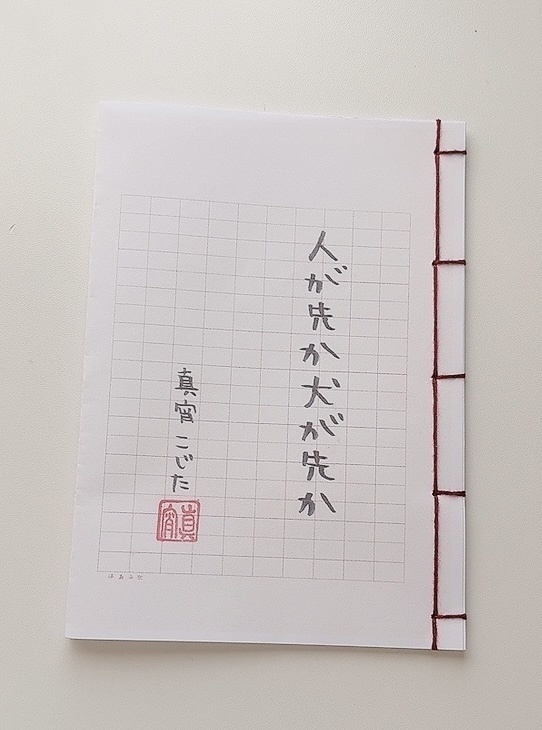 人が先か犬が先か
真宵こじた
真宵